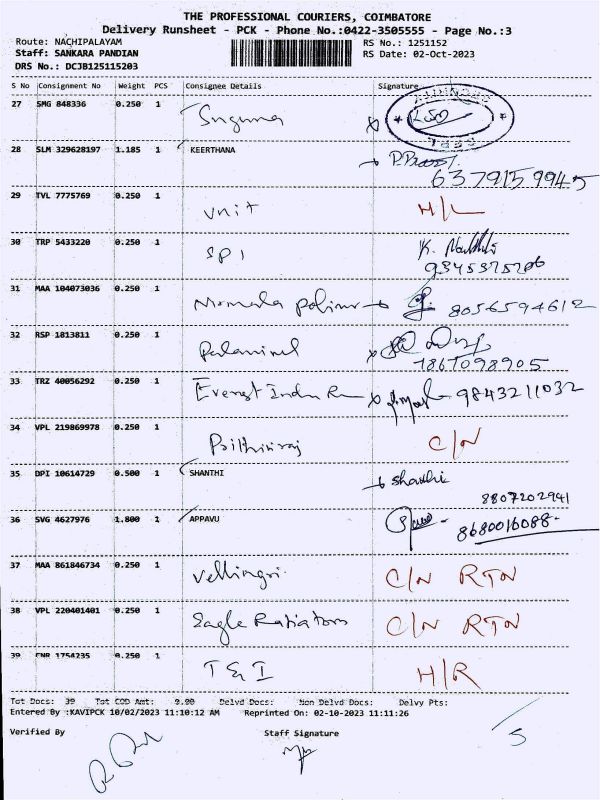 THE PROFESSIONAL COURIERS, COIMBATORE
Delivery Runsheet - PCK - Phone No.:0422-3505555 - Page No.:3
Route: NACHIPALAYAM RS No.: 1251152
Staff: SANKARA PANDIAN RS Date: 02-Oct-2023
DRS No.: DCJB125115203
S No Consignment No Weight PCS Consignee Details Signature
27 SMG 848336 0.250 1 Suguna
28 SLM 329628197 1.185 1 KEERTHANA
6379159945
29 TVL 7775769 0.250 1 Unit H/L
30 TRP 5433220 0.250 1 SPI
9345375706
31 MAA 104073036 0.250 1 8056594612
32 RSP 1813811 0.250 1
33 TRZ 40056292 0.250 1 Everest Indu 9843211032
34 VPL 219869978 0.250 1 C/N
35 DPI 10614729 0.500 1 SHANTHI Shanthi
8807202941
36 SVG 4627976 1.800 1 APPAVU 8680016088
37 MAA 861846734 0.250 1 Vellingri C/N RTN
38 VPL 220401401 0.250 1 Eagle Ratiators C/N RTN
39 CNR 1754235 0.250 1 T & I H/R
Tot Docs: 39 Tot COD Amt: 0.00 Delvd Docs: Non Delvd Docs: Delvy Pts:
Entered By :KAVIPCK 10/02/2023 11:10:12 AM Reprinted On: 02-10-2023 11:11:26
Verified By Staff Signature